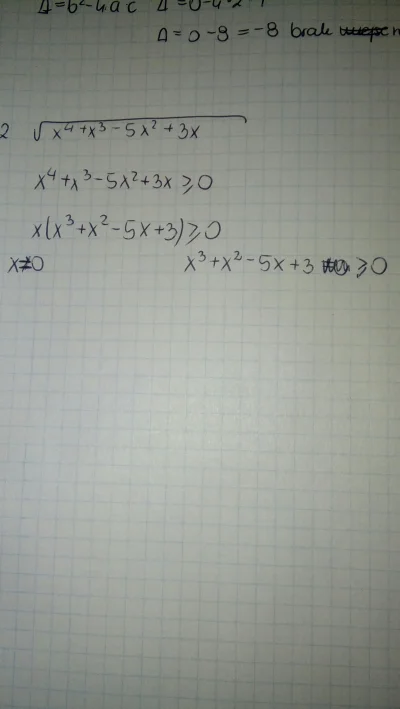 Δ=b²-4ac Δ=0-4·2·1
Δ=0-8=-8 brak
2 √x⁴+x³-5x²+3x
x⁴+x³-5x²+3x⩾0
x(x³+x²-5x+3)⩾0
x≠0 x³+x²-5x+3 ⩾0